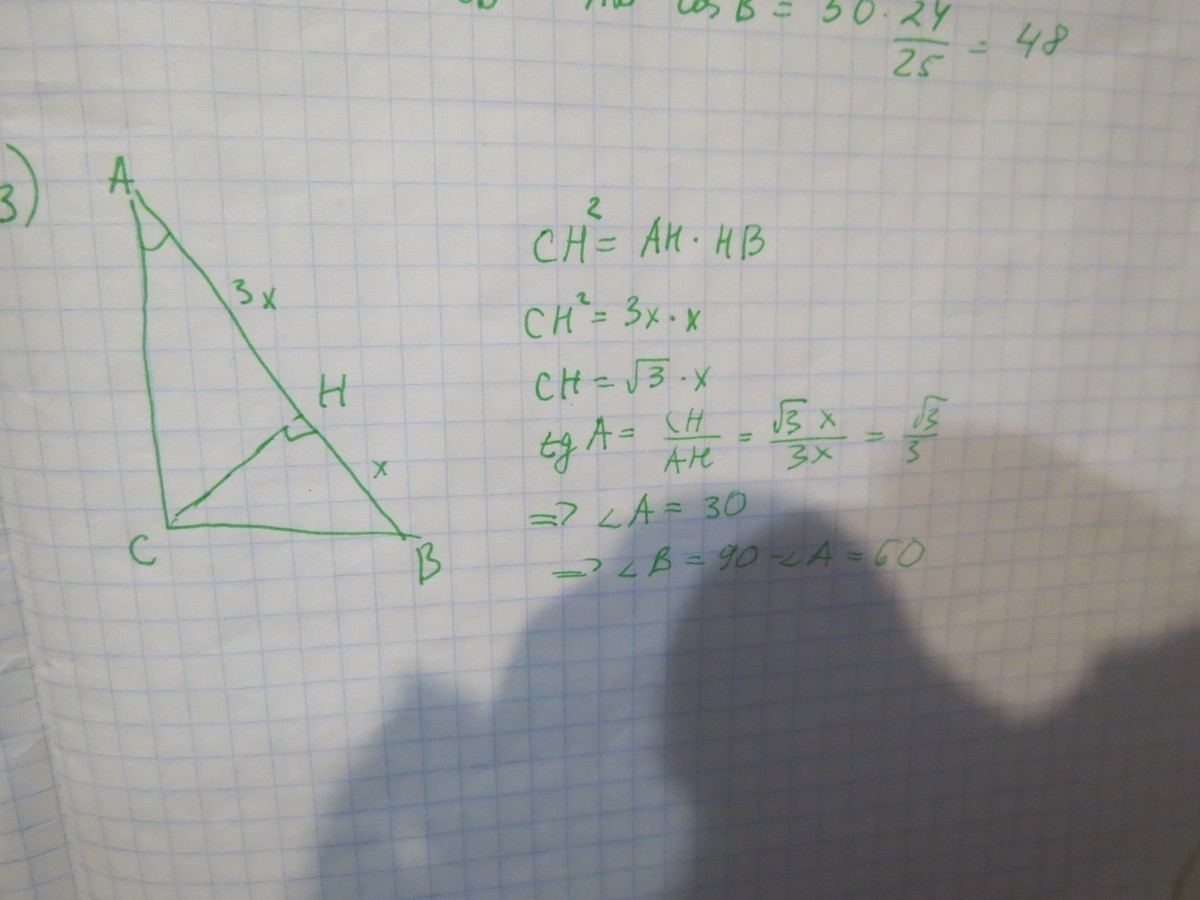 cos B = 50 · 24/25 = 48
3)
A
3x
H
x
C
B
CH² = AH · HB
CH² = 3x · x
CH = √3 · x
tg A = CH/AH = √3 x/3x = √3/3
=> ∠A = 30
=> ∠B = 90 - ∠A = 60